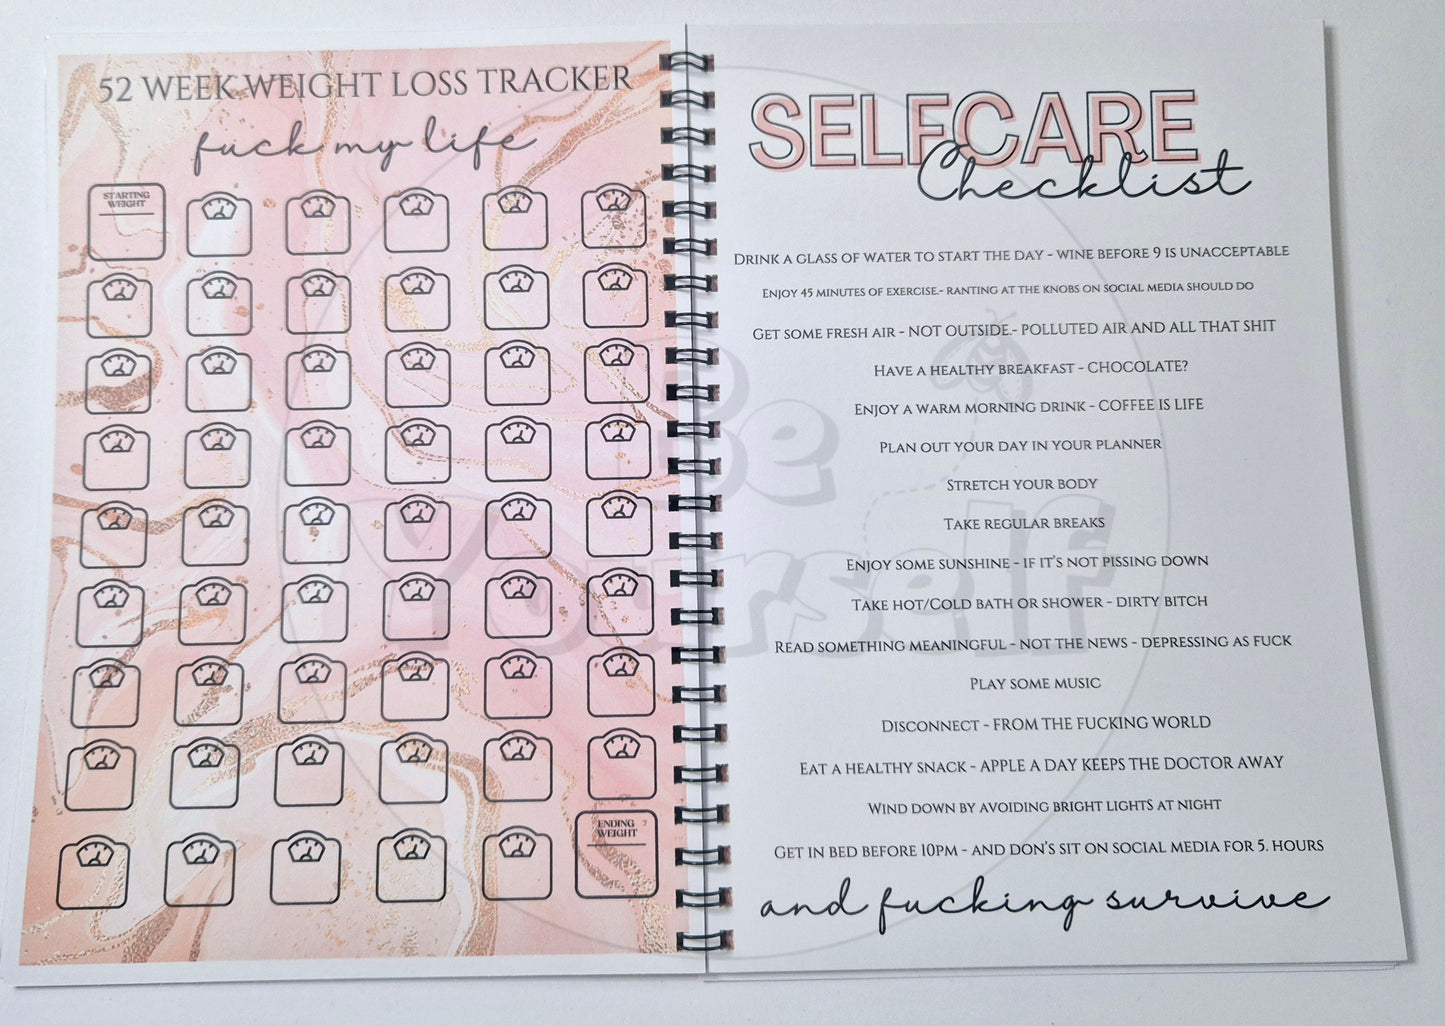 52 WEEK WEIGHT LOSS TRACKER
fuck my life
STARTING
WEIGHT
ENDING
WEIGHT
SELFCARE
Checklist
DRINK A GLASS OF WATER TO START THE DAY - WINE BEFORE 9 IS UNACCEPTABLE
ENJOY 45 MINUTES OF EXERCISE.- RANTING AT THE KNOBS ON SOCIAL MEDIA SHOULD DO
GET SOME FRESH AIR - NOT OUTSIDE.- POLLUTED AIR AND ALL THAT SHIT
HAVE A HEALTHY BREAKFAST - CHOCOLATE?
ENJOY A WARM MORNING DRINK - COFFEE IS LIFE
PLAN OUT YOUR DAY IN YOUR PLANNER
STRETCH YOUR BODY
TAKE REGULAR BREAKS
ENJOY SOME SUNSHINE - IF IT'S NOT PISSING DOWN
TAKE HOT/COLD BATH OR SHOWER - DIRTY BITCH
READ SOMETHING MEANINGFUL - NOT THE NEWS - DEPRESSING AS FUCK
PLAY SOME MUSIC
DISCONNECT - FROM THE FUCKING WORLD
EAT A HEALTHY SNACK - APPLE A DAY KEEPS THE DOCTOR AWAY
WIND DOWN BY AVOIDING BRIGHT LIGHTS AT NIGHT
GET IN BED BEFORE 10PM - AND DON'S SIT ON SOCIAL MEDIA FOR 5. HOURS
and fucking survive
Be
Yourself